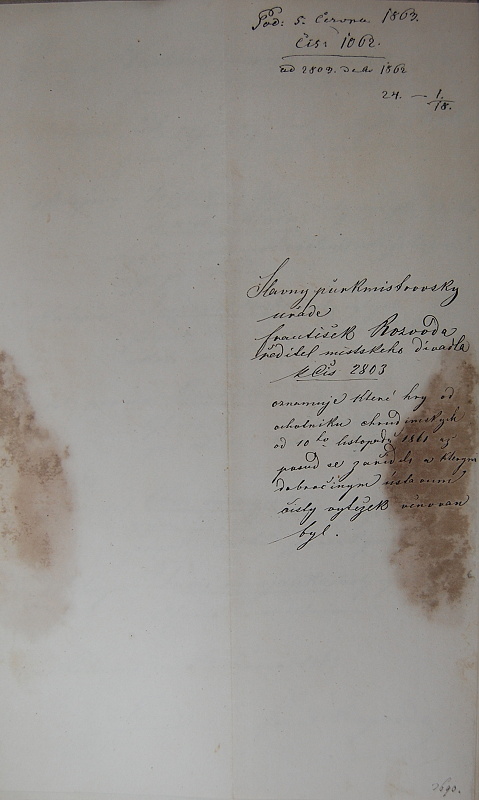 Pod: 5. Června 1863.
Čís: 1062.
ad 2803. de Ao 1862
24. — 1/18.
Slavny purkmistrovsky
uřade
František Rozvoda
ředitel mistskeho divadla
k Čis 2803
oznamuje které hry od
ochotniku chrudimskych
od 10ho listopadu 1861 až
posud se zařídili a kterym
dobročinym ustavum
čisty vytěžek věnovan
byl.